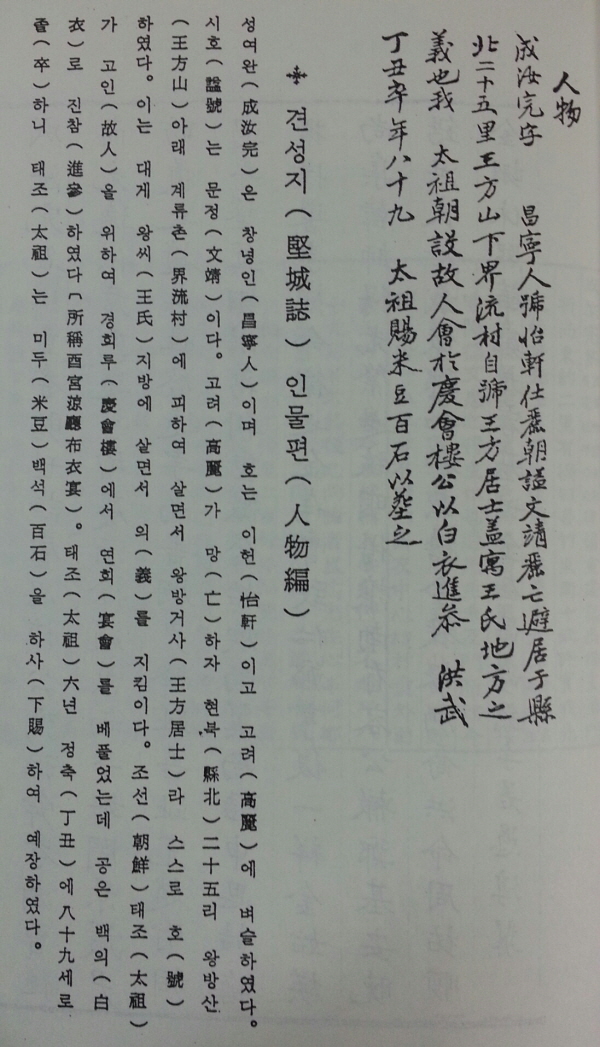 人物
成汝完字 昌寧人號怡軒仕麗朝謚文靖麗亡避居于縣
北二十五里王方山下界流村自號王方居士盖寓王氏地方之
義也我 太祖朝設故人會於慶會樓公以白衣進叅 洪武
丁丑卒年八十九 太祖賜米豆百石以葬之
견성지(堅城誌) 인물편(人物編)
성여완(成汝完)은 창녕인(昌寧人)이며 호는 이헌(怡軒)이고 고려(高麗)에 벼슬하였다.
시호(諡號)는 문정(文靖)이다. 고려(高麗)가 망(亡)하자 현북(縣北)二十五리 왕방산
(王方山)아래 계류촌(界流村)에 피하여 살면서 왕방거사(王方居士)라 스스로 호(號)
하였다. 이는 대게 왕씨(王氏)지방에 살면서 의(義)를 지킴이다. 조선(朝鮮)태조(太祖)
가 고인(故人)을 위하여 경회루(慶會樓)에서 연회(宴會)를 베풀었는데 공은 백의(白
衣)로 진참(進參)하였다(所稱酉宮涼廳布衣宴). 태조(太祖)六년 정축(丁丑)에 八十九세로
졸(卒)하니 태조(太祖)는 미두(米豆)백석(百石)을 하사(下賜)하여 예장하였다.